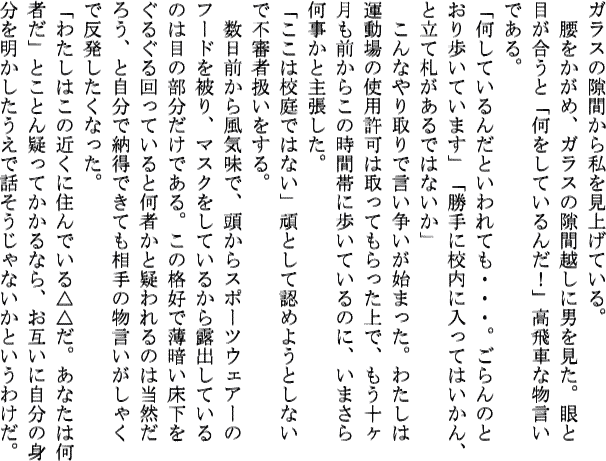 ガラスの隙間から私を見上げている。
　腰をかがめ、ガラスの隙間越しに男を見た。眼と
目が合うと「何をしているんだ！」高飛車な物言い
である。
「何しているんだといわれても・・・。ごらんのと
おり歩いています」「勝手に校内に入ってはいかん、
と立て札があるではないか」
　こんなやり取りで言い争いが始まった。わたしは
運動場の使用許可は取ってもらった上で、もう十ヶ
月も前からこの時間帯に歩いているのに、いまさら
何事かと主張した。
「ここは校庭ではない」頑として認めようとしない
で不審者扱いをする。
　数日前から風気味で、頭からスポーツウェアーの
フードを被り、マスクをしているから露出している
のは目の部分だけである。この格好で薄暗い床下を
ぐるぐる回っていると何者かと疑われるのは当然だ
ろう、と自分で納得できても相手の物言いがしゃく
で反発したくなった。
「わたしはこの近くに住んでいる△△だ。あなたは何
者だ」とことん疑ってかかるなら、お互いに自分の身
分を明かしたうえで話そうじゃないかというわけだ。